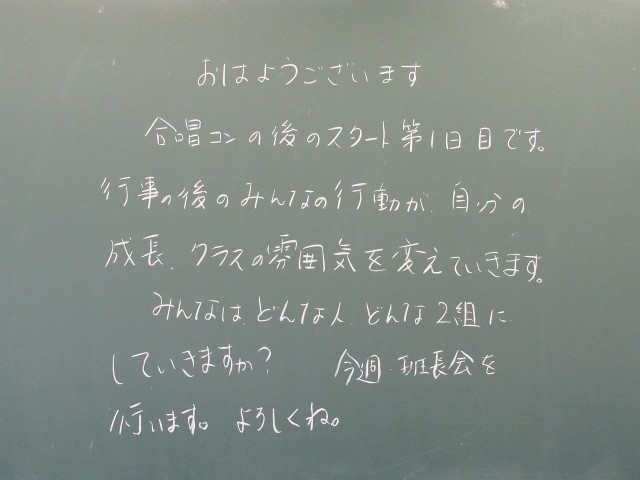 おはようございます
合唱コンの後のスタート第1日目です。
行事の後のみんなの行動が、自分の
成長、クラスの雰囲気を変えていきます。
みんなは、どんな人、どんな2組に
していきますか? 今週、班長会を
行います。よろしくね。